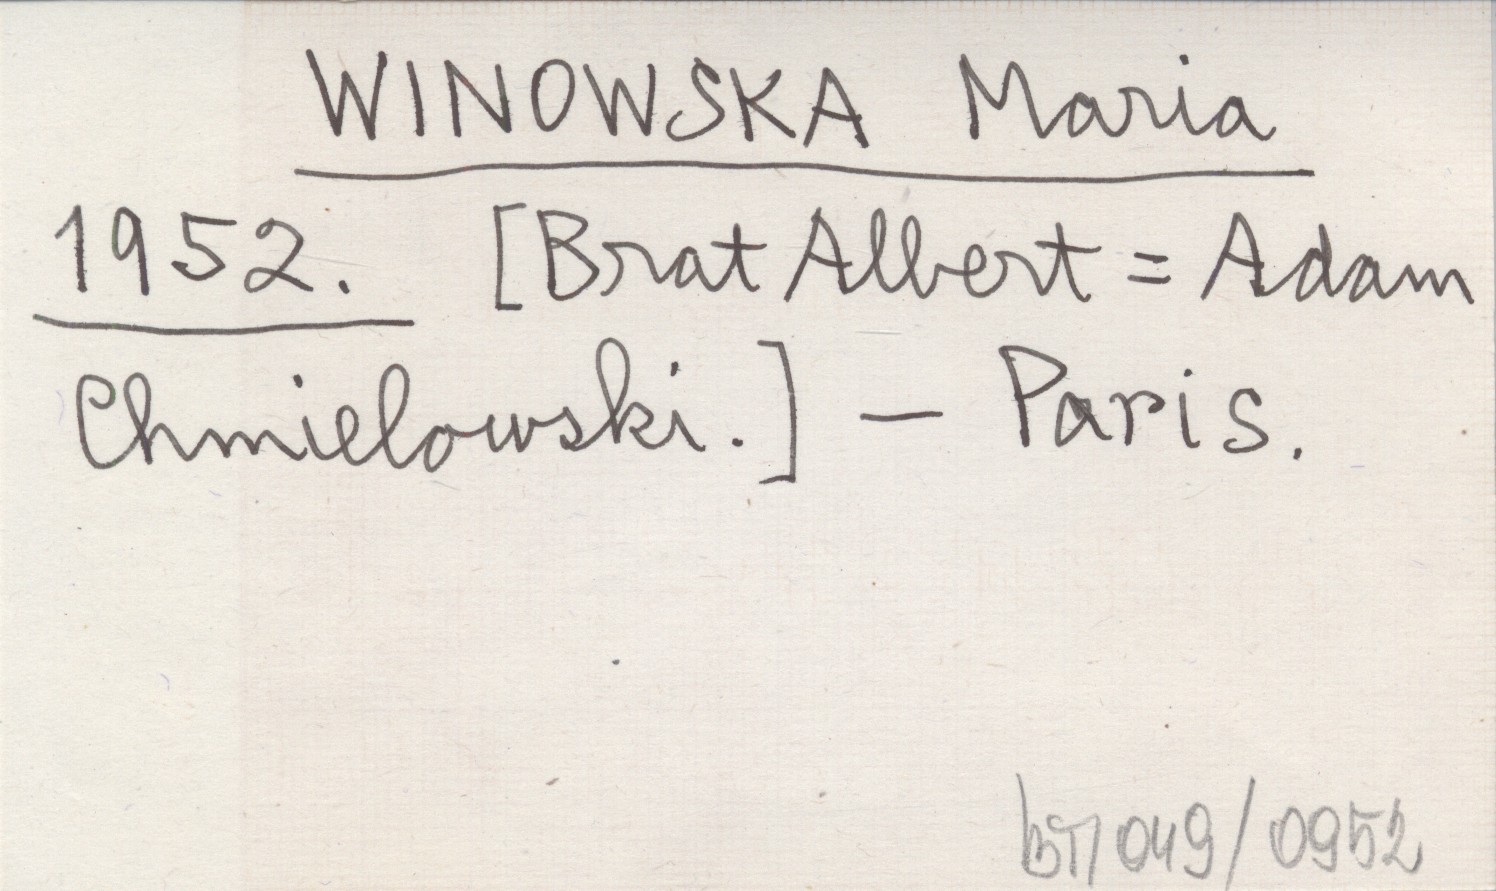 WINOWSKA Maria
1952. [Brat Albert = Adam
Chmielowski.] — Paris.
049/0952